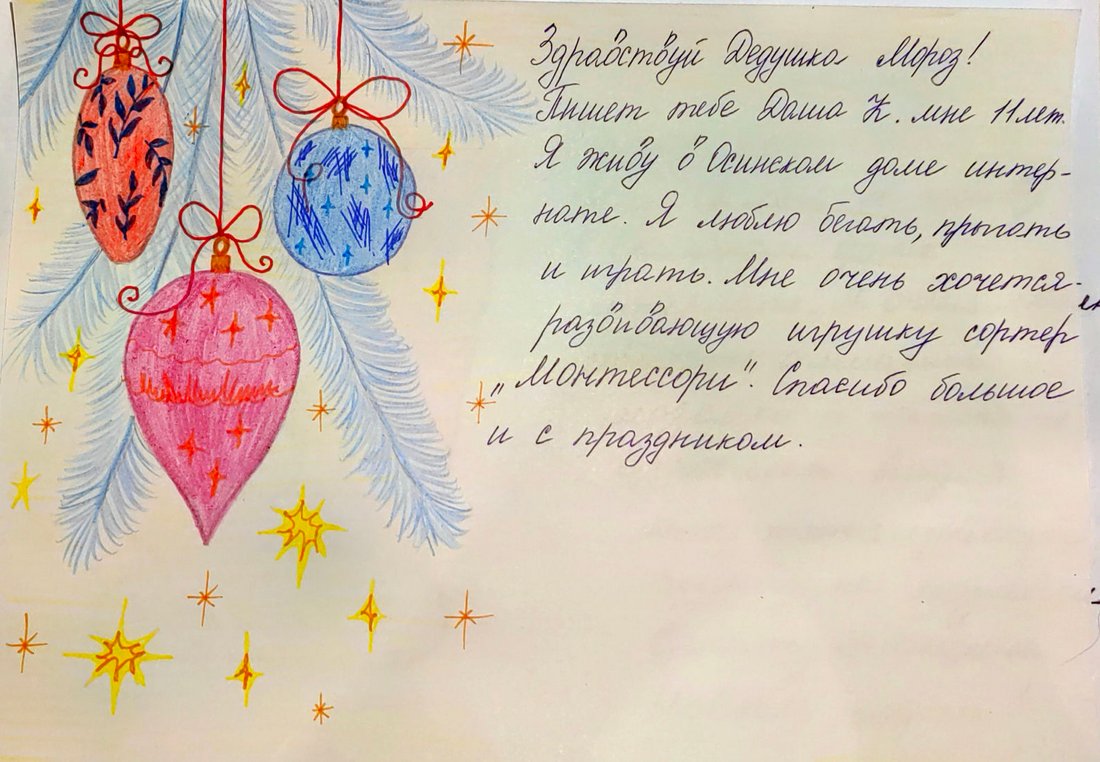 Здравствуй Дедушка Мороз!
Пишет тебе Даша К. мне 11 лет.
Я живу в Осинском доме интер-
нате. Я люблю бегать, прыгать
и играть. Мне очень хочется-
развивающую игрушку сортер
"Монтессори". Спасибо большое
и с праздником.